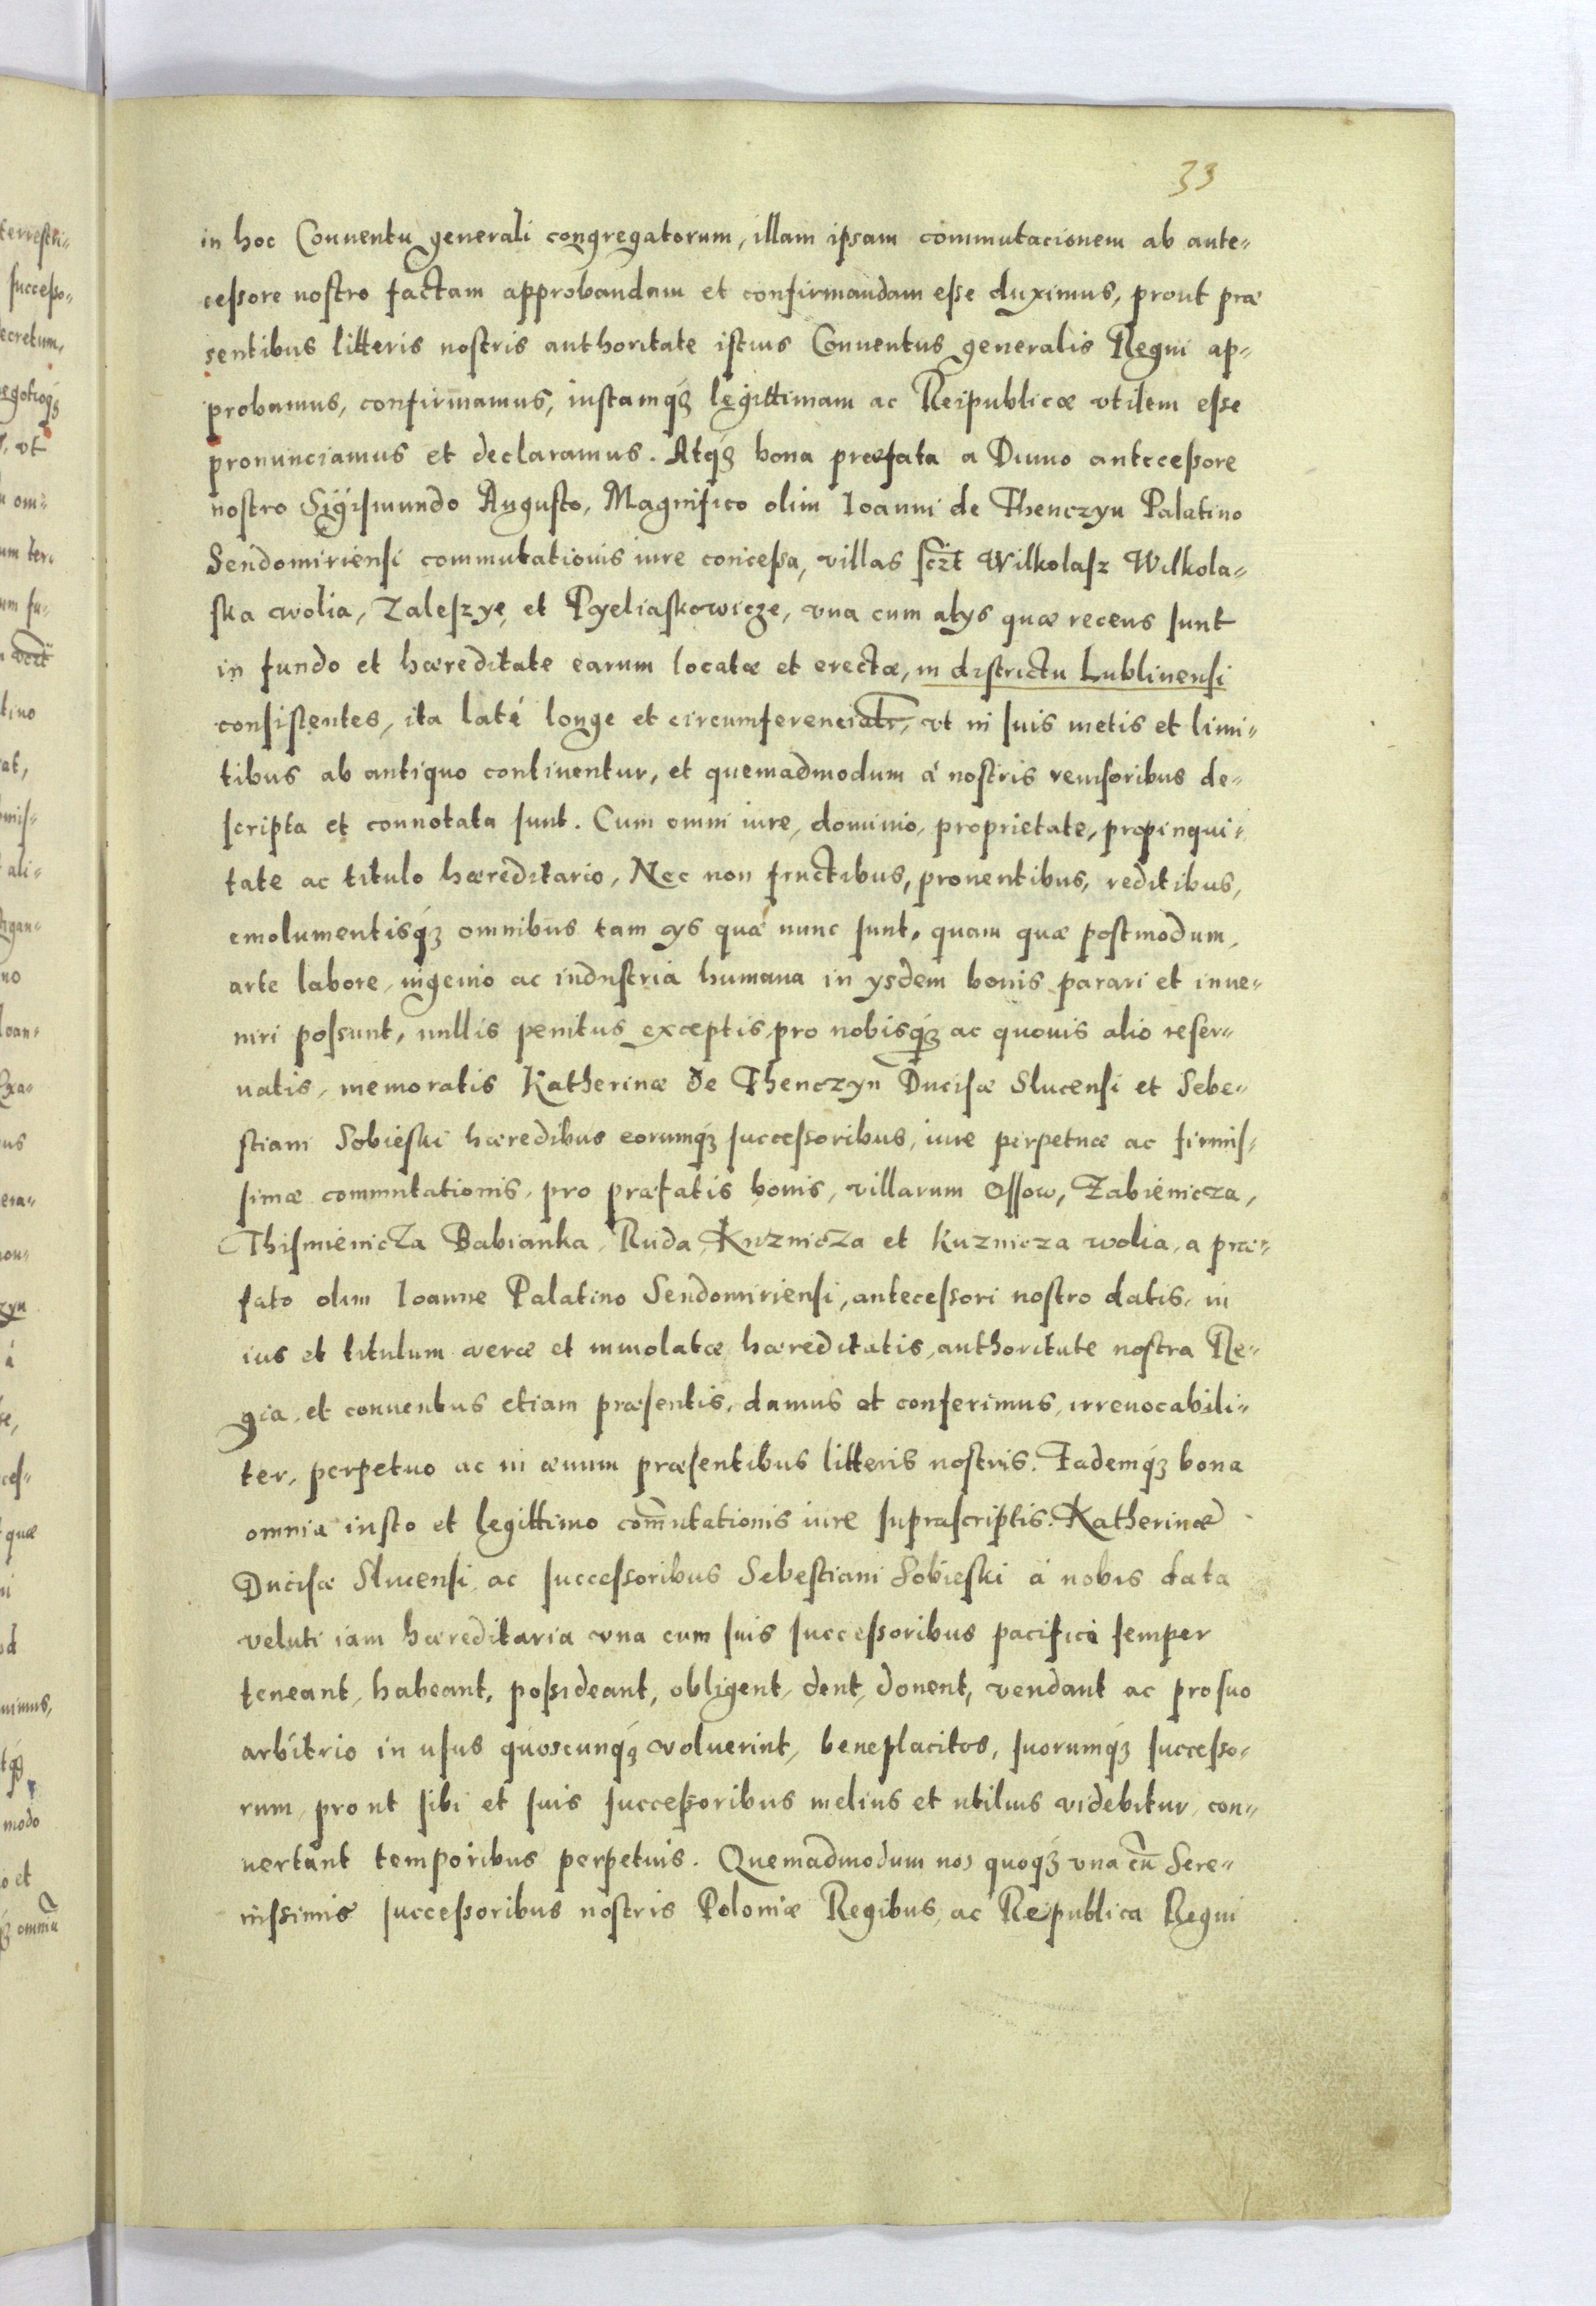 33
in hoc Conuentu generali congregatorum, illam ipsam commutacionem ab ante-
cessore nostro factam approbandam et confirmandam esse duximus, prout præ
sentibus litteris nostris authoritate istius Conuentus generalis Regni ap-
probamus, confirmamus, iustamq́ꝫ legittimam ac Reipublicæ vtilem esse
pronunciamus et declaramus. Atq́ꝫ bona præfata a Diuuo antecessore
nostro Sigismundo Augusto, Magnifico olim Ioanni de Thenczyn Palatino
Sendomiriensi commutationis iure concessa, villas sczt Wilkolasz Wilkola-
ska wolia, Zaleszye, et Pyeliaskowicze, vna cum alys quæ recens sunt
in fundo et hæreditate earum locatæ et erectæ, in districtu Lublinensi
consistentes, ita laté longe et circumferenciatr, vt in suis metis et limi-
tibus ab antiquo continentur, et quemadmodum á nostris reuisoribus de-
scripta et connotata sunt. Cum omni iure, dominio, proprietate, propinqui-
tate ac titulo hæreditario, Nec non fructibus, prouentibus, reditibus,
emolumentisq́ꝫ omnibus tam ys quæ nunc sunt, quam quæ postmodum,
arte labore, ingenio ac industria humana in ysdem bonis parari et inue-
niri possunt, nullis penitus exceptis, pro nobisq́ꝫ ac quouis alio reser-
uatis, memoratis Katherinæ de Thenczyn Ducisæ Slucensi et Sebe-
stiani Sobieski hæredibus eorumq́ꝫ successoribus, iure perpetuæ ac firmis-
simæ commutationis, pro præfatis bonis, villarum Ossow, Zabienicza,
Thismienicza Babianka, Ruda, Kuznicza et Kuznicza wolia, a præ-
fato olim Ioanne Palatino Sendomiriensi, antecessori nostro datis, in
ius et titulum veræ et inuiolatæ hæreditatis, authoritate nostra Re-
gia, et conuentus etiam præsentis, damus et conferimus, irreuocabili-
ter, perpetuo ac in æuum præsentibus litteris nostris. Eademq́ꝫ bona
omnia iusto et legittimo com̃utationis iure suprascriptis. Katherinæ
Ducisæ Slucensi, ac successoribus Sebestiani Sobieski á nobis data
veluti iam hæreditaria vna cum suis successoribus pacifice semper
teneant, habeant, possideant, obligent, dent, donent, vendant ac pro suo
arbitrio in usus quoscunq́ꝫ voluerint, beneplacitos, suorumq́ꝫ successo-
rum, prout sibi et suis successoribus melius et utilius videbitur, con-
uertant temporibus perpetuis. Quemadmodum nos quoq́ꝫ vna cũ Sere-
nissimis successoribus nostris Poloniæ Regibus, ac Republica Regni